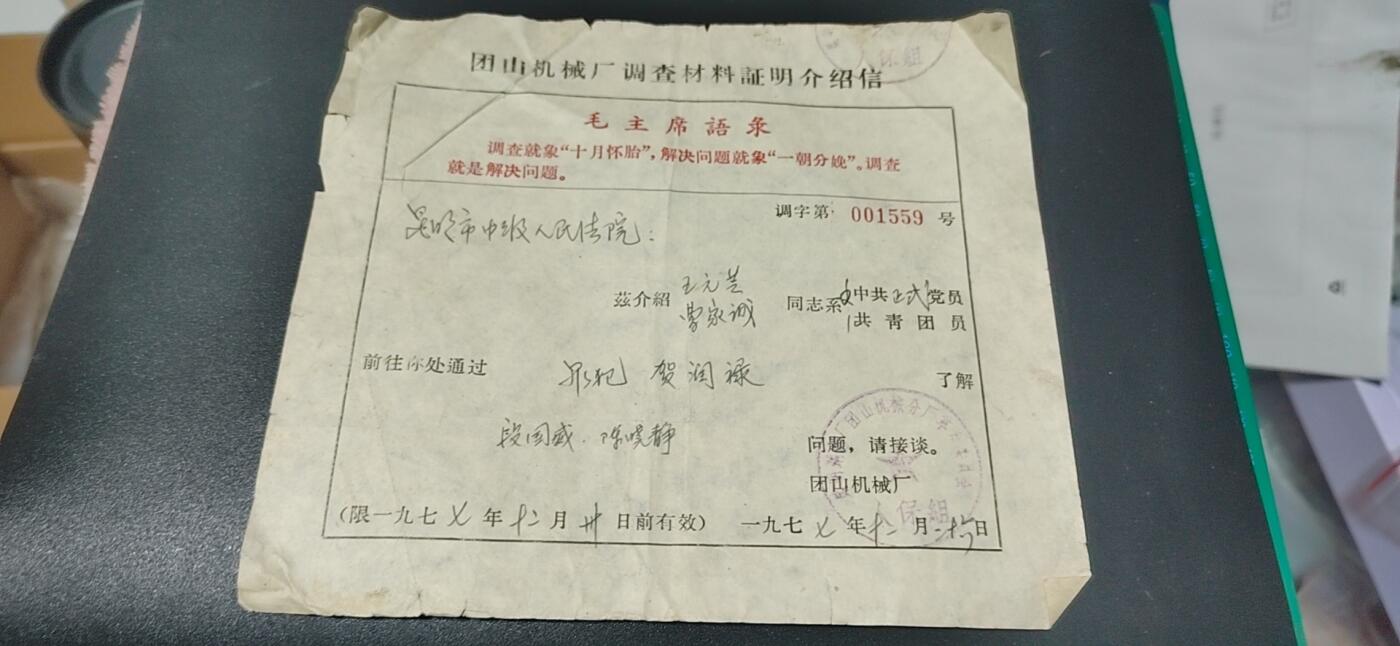 保组
团山机械厂调查材料証明介绍信
毛主席語彔
调查就象“十月怀胎”，解决问题就象“一朝分娩”。调查
就是解决问题。
调字第 001559 号
昆明市中级人民法院：
兹介紹 王元芸 同志系 中共正式党员
曹家诚 共青团员
前往你处通过 罪犯 贺润禄 了解
段国威、陈晓静
问题，请接谈。
团山机械厂
保組
（限一九七七年十二月卅日前有效） 一九七七年十二月二十六日